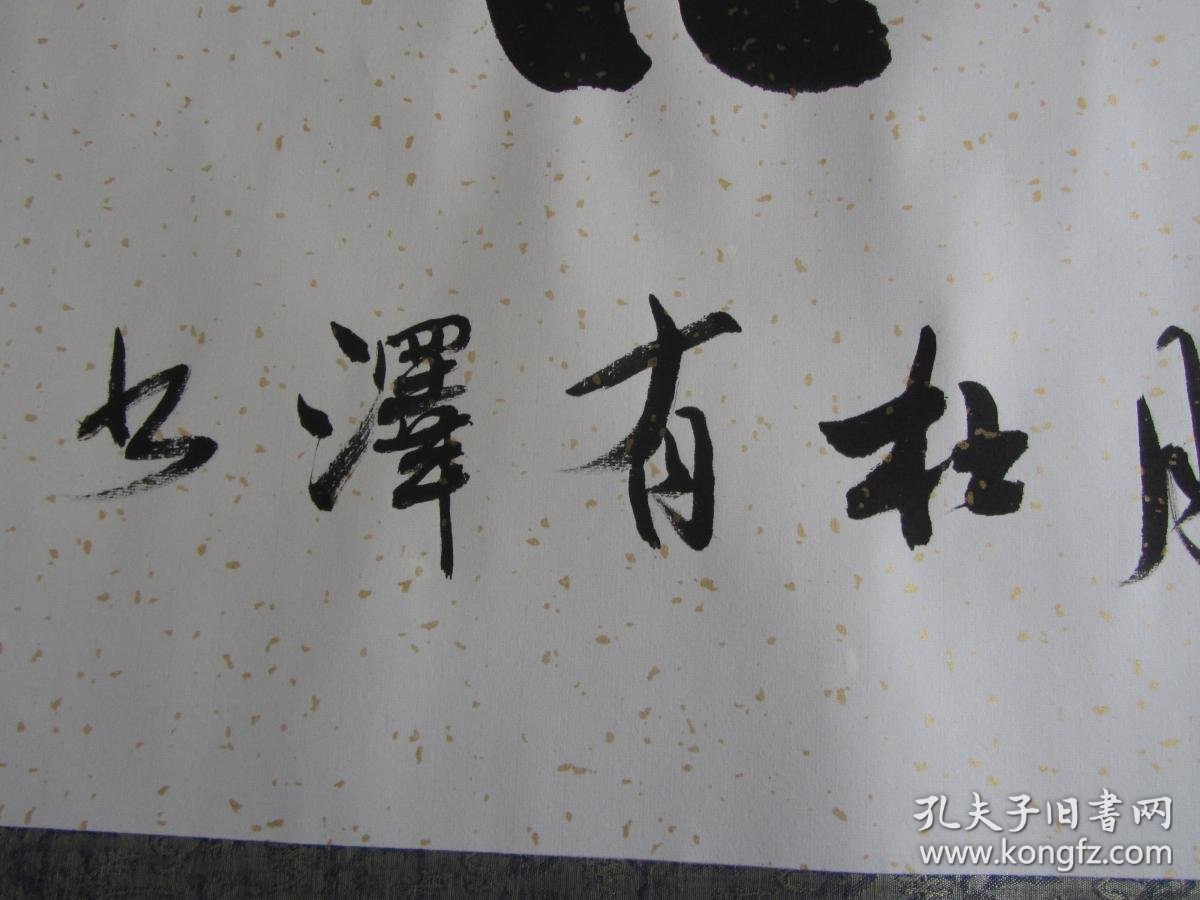 杜有澤书
孔夫子旧書网
www.kongfz.com